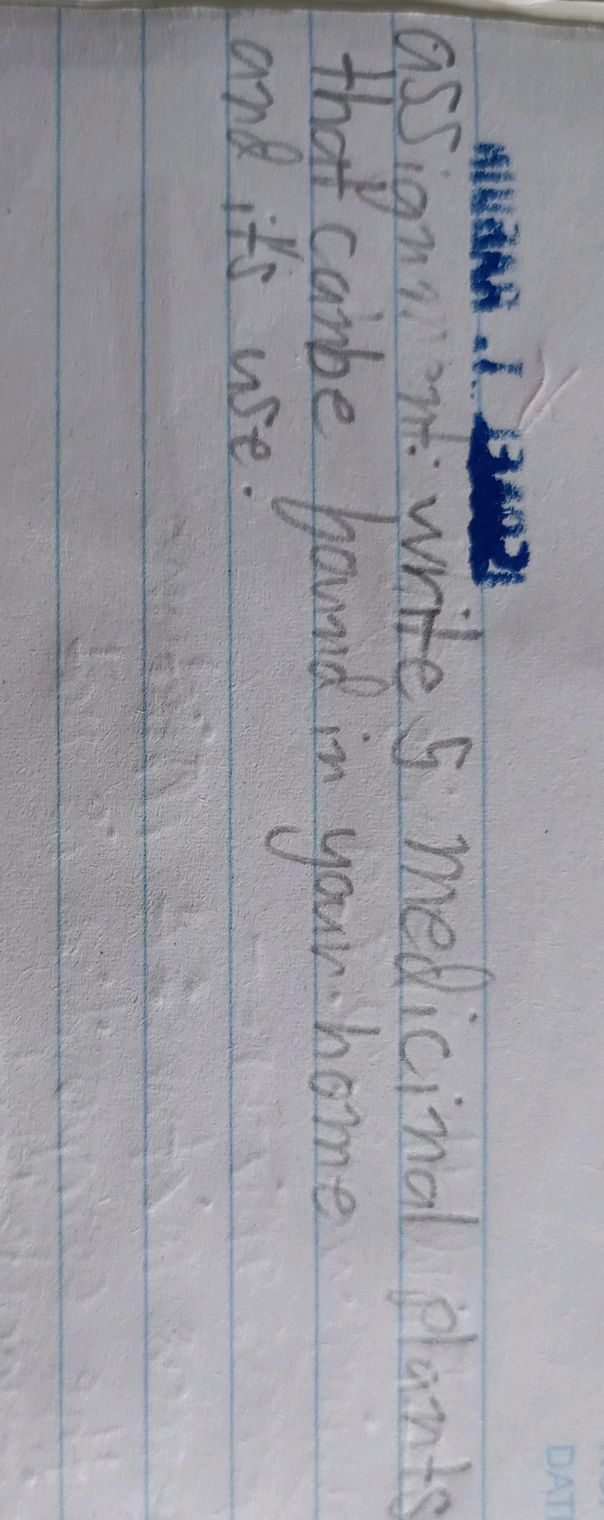 assignment: write 5 medicinal plants
that can be found in your home
and it's use.
DATE